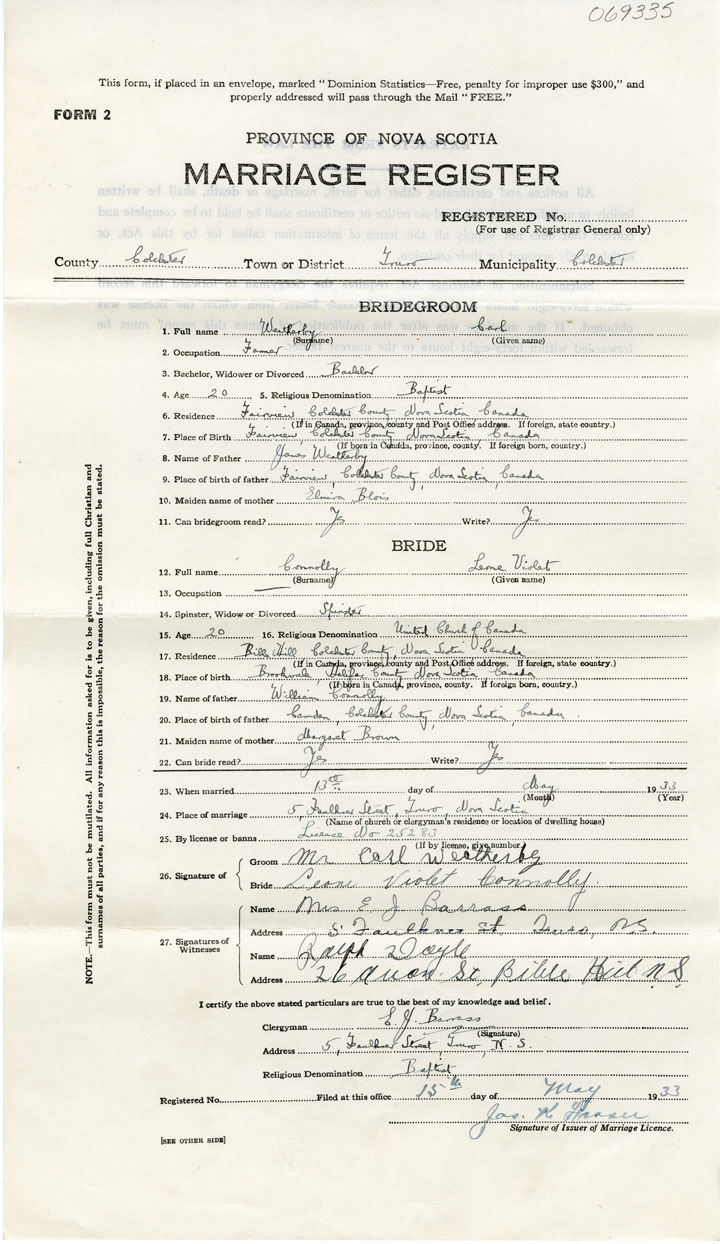 069335
This form, if placed in an envelope, marked "Dominion Statistics—Free, penalty for improper use $300," and
properly addressed will pass through the Mail "FREE."
FORM 2
PROVINCE OF NOVA SCOTIA
MARRIAGE REGISTER
REGISTERED No.
(For use of Registrar General only)
County Colchester Town or District Truro Municipality Colchester
BRIDEGROOM
1. Full name Weatherby Carl
(Surname) (Given name)
2. Occupation Farmer
3. Bachelor, Widower or Divorced Bachelor
4. Age 20 5. Religious Denomination Baptist
6. Residence Fairview Colchester County Nova Scotia Canada
(If in Canada, province, county and Post Office address. If foreign, state country.)
7. Place of Birth Fairview, Colchester County, Nova Scotia, Canada
(If born in Canada, province, county. If foreign born, country.)
8. Name of Father James Weatherby
9. Place of birth of father Fairview, Colchester County, Nova Scotia, Canada
10. Maiden name of mother Elmira Blois
11. Can bridegroom read? Yes Write? Yes
BRIDE
12. Full name Connolly Leone Violet
(Surname) (Given name)
13. Occupation —
14. Spinster, Widow or Divorced Spinster
15. Age 20 16. Religious Denomination United Church of Canada
17. Residence Bible Hill Colchester County, Nova Scotia Canada
(If in Canada, province, county and Post Office address. If foreign, state country.)
18. Place of birth Brookvale Halifax County Nova Scotia, Canada
(If born in Canada, province, county. If foreign born, country.)
19. Name of father William Connolly
20. Place of birth of father Camden, Colchester County, Nova Scotia, Canada.
21. Maiden name of mother Margaret Brown
22. Can bride read? Yes Write? Yes
23. When married 13th day of May 1933
(Month) (Year)
24. Place of marriage 5, Faulkner Street, Truro, Nova Scotia
(Name of church or clergyman's residence or location of dwelling house)
25. By license or banns Licence No 25283
(If by license, give number)
26. Signature of
Groom Mr Carl Weatherby
Bride Leone Violet Connolly.
27. Signatures of Witnesses
Name Mrs E J Barrass
Address 5 Faulkner St. Truro, N.S.
Name Ralph Doyle
Address 26 St, Bible Hill N.S
I certify the above stated particulars are true to the best of my knowledge and belief.
Clergyman E. J. Barrass
(Signature)
Address 5, Faulkner Street, Truro, N.S.
Religious Denomination Baptist
Registered No. Filed at this office 15th day of May 1933
Jas. K Fraser
Signature of Issuer of Marriage Licence.
[SEE OTHER SIDE]
NOTE.—This form must not be mutilated. All information asked for is to be given, including full Christian and
surnames of all parties, and if for any reason this is impossible, the reason for the omission must be stated.